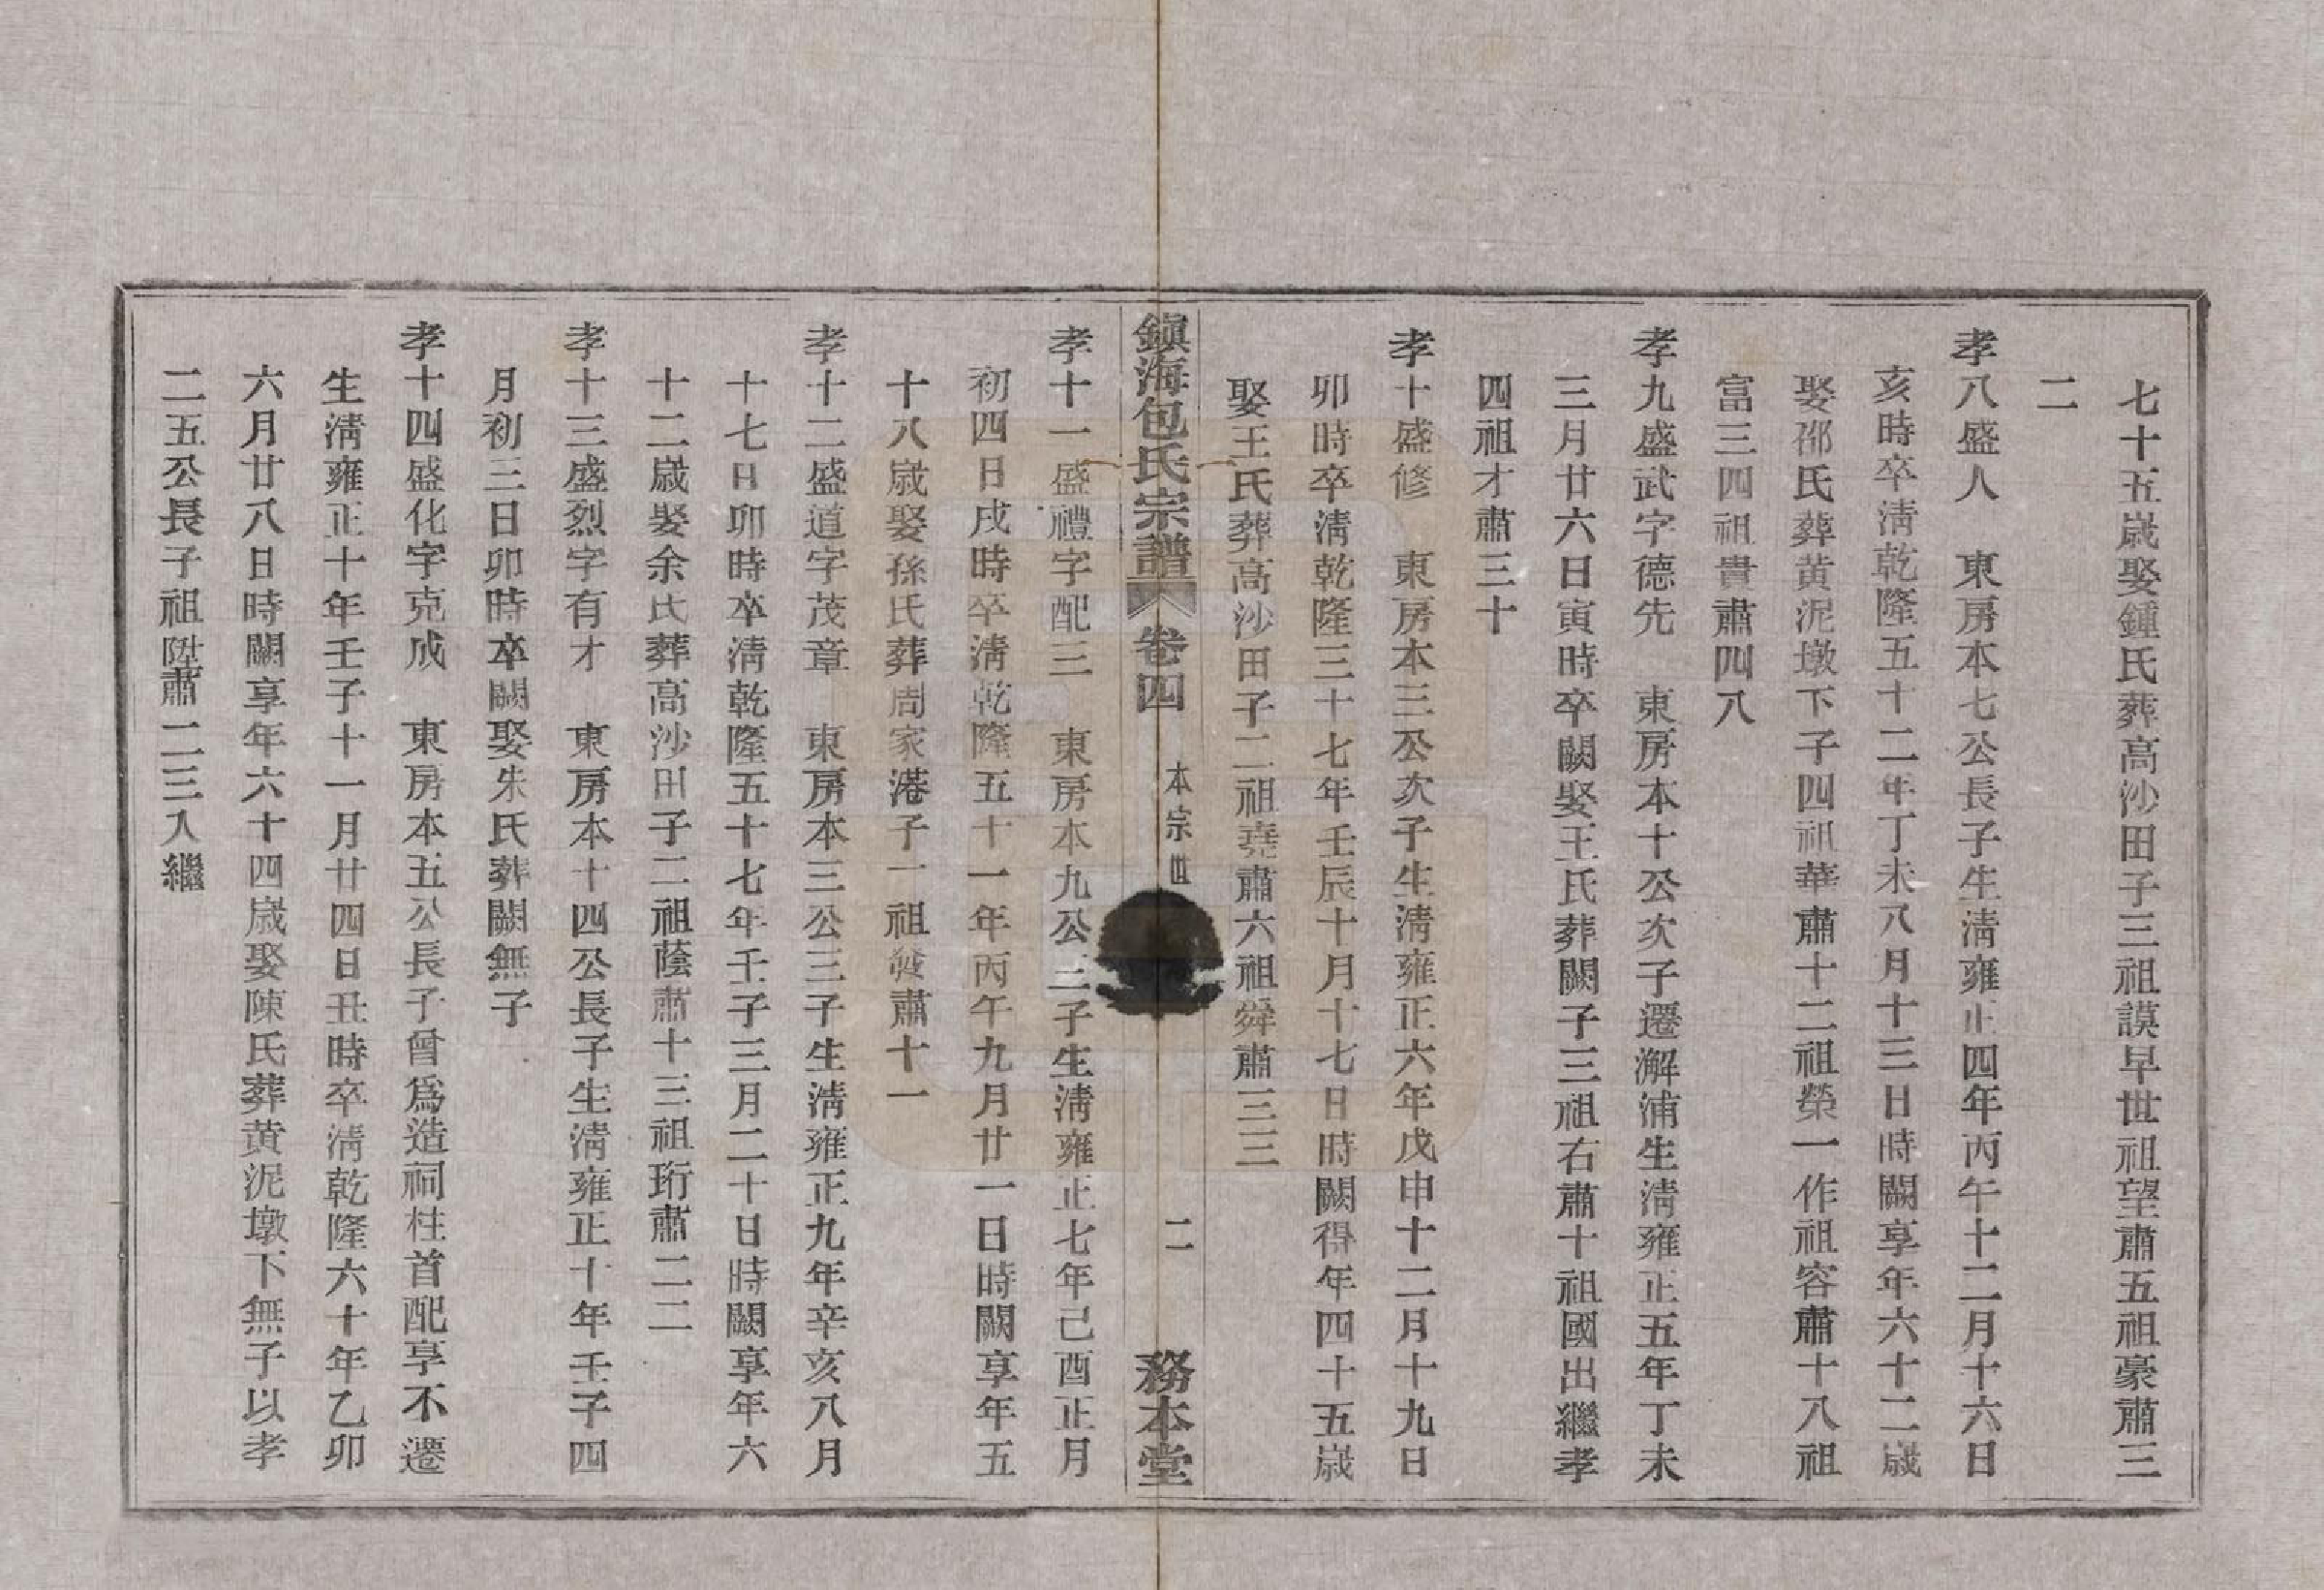 七十五歲娶鍾氏葬高沙田子三祖謨早世祖望肅五祖豪肅三
二
孝八盛人　東房本七公長子生清雍正四年丙午十二月十六日
亥時卒清乾隆五十二年丁未八月十三日時闕享年六十二歲
娶邵氏葬黄泥墩下子四祖華肅十二祖榮一作祖容肅十八祖
富三四祖貴肅四八
孝九盛武字德先　東房本十公次子遷澥浦生清雍正五年丁未
三月廿六日寅時卒闕娶王氏葬闕子三祖右肅十祖國出繼孝
四祖才肅三十
孝十盛修　東房本三公次子生清雍正六年戊申十二月十九日
卯時卒清乾隆三十七年壬辰十月十七日時闕得年四十五歲
娶王氏葬高沙田子二祖堯肅六祖舜肅三三
鎭海包氏宗譜　卷四　本宗世　二　務本堂
孝十一盛禮字配三　東房本九公三子生清雍正七年己酉正月
初四日戌時卒清乾隆五十一年丙午九月廿一日時闕享年五
十八歲娶孫氏葬周家港子一祖發肅十一
孝十二盛道字茂章　東房本三公三子生清雍正九年辛亥八月
十七日卯時卒清乾隆五十七年壬子三月二十日時闕享年六
十二歲娶余氏葬高沙田子二祖蔭肅十三祖珩肅二二
孝十三盛烈字有才　東房本十四公長子生清雍正十年壬子四
月初三日卯時卒闕娶朱氏葬闕無子
孝十四盛化字克成　東房本五公長子曾爲造祠柱首配享不遷
生清雍正十年壬子十一月廿四日丑時卒清乾隆六十年乙卯
六月廿八日時闕享年六十四歲娶陳氏葬黄泥墩下無子以孝
二五公長子祖陞肅二三入繼